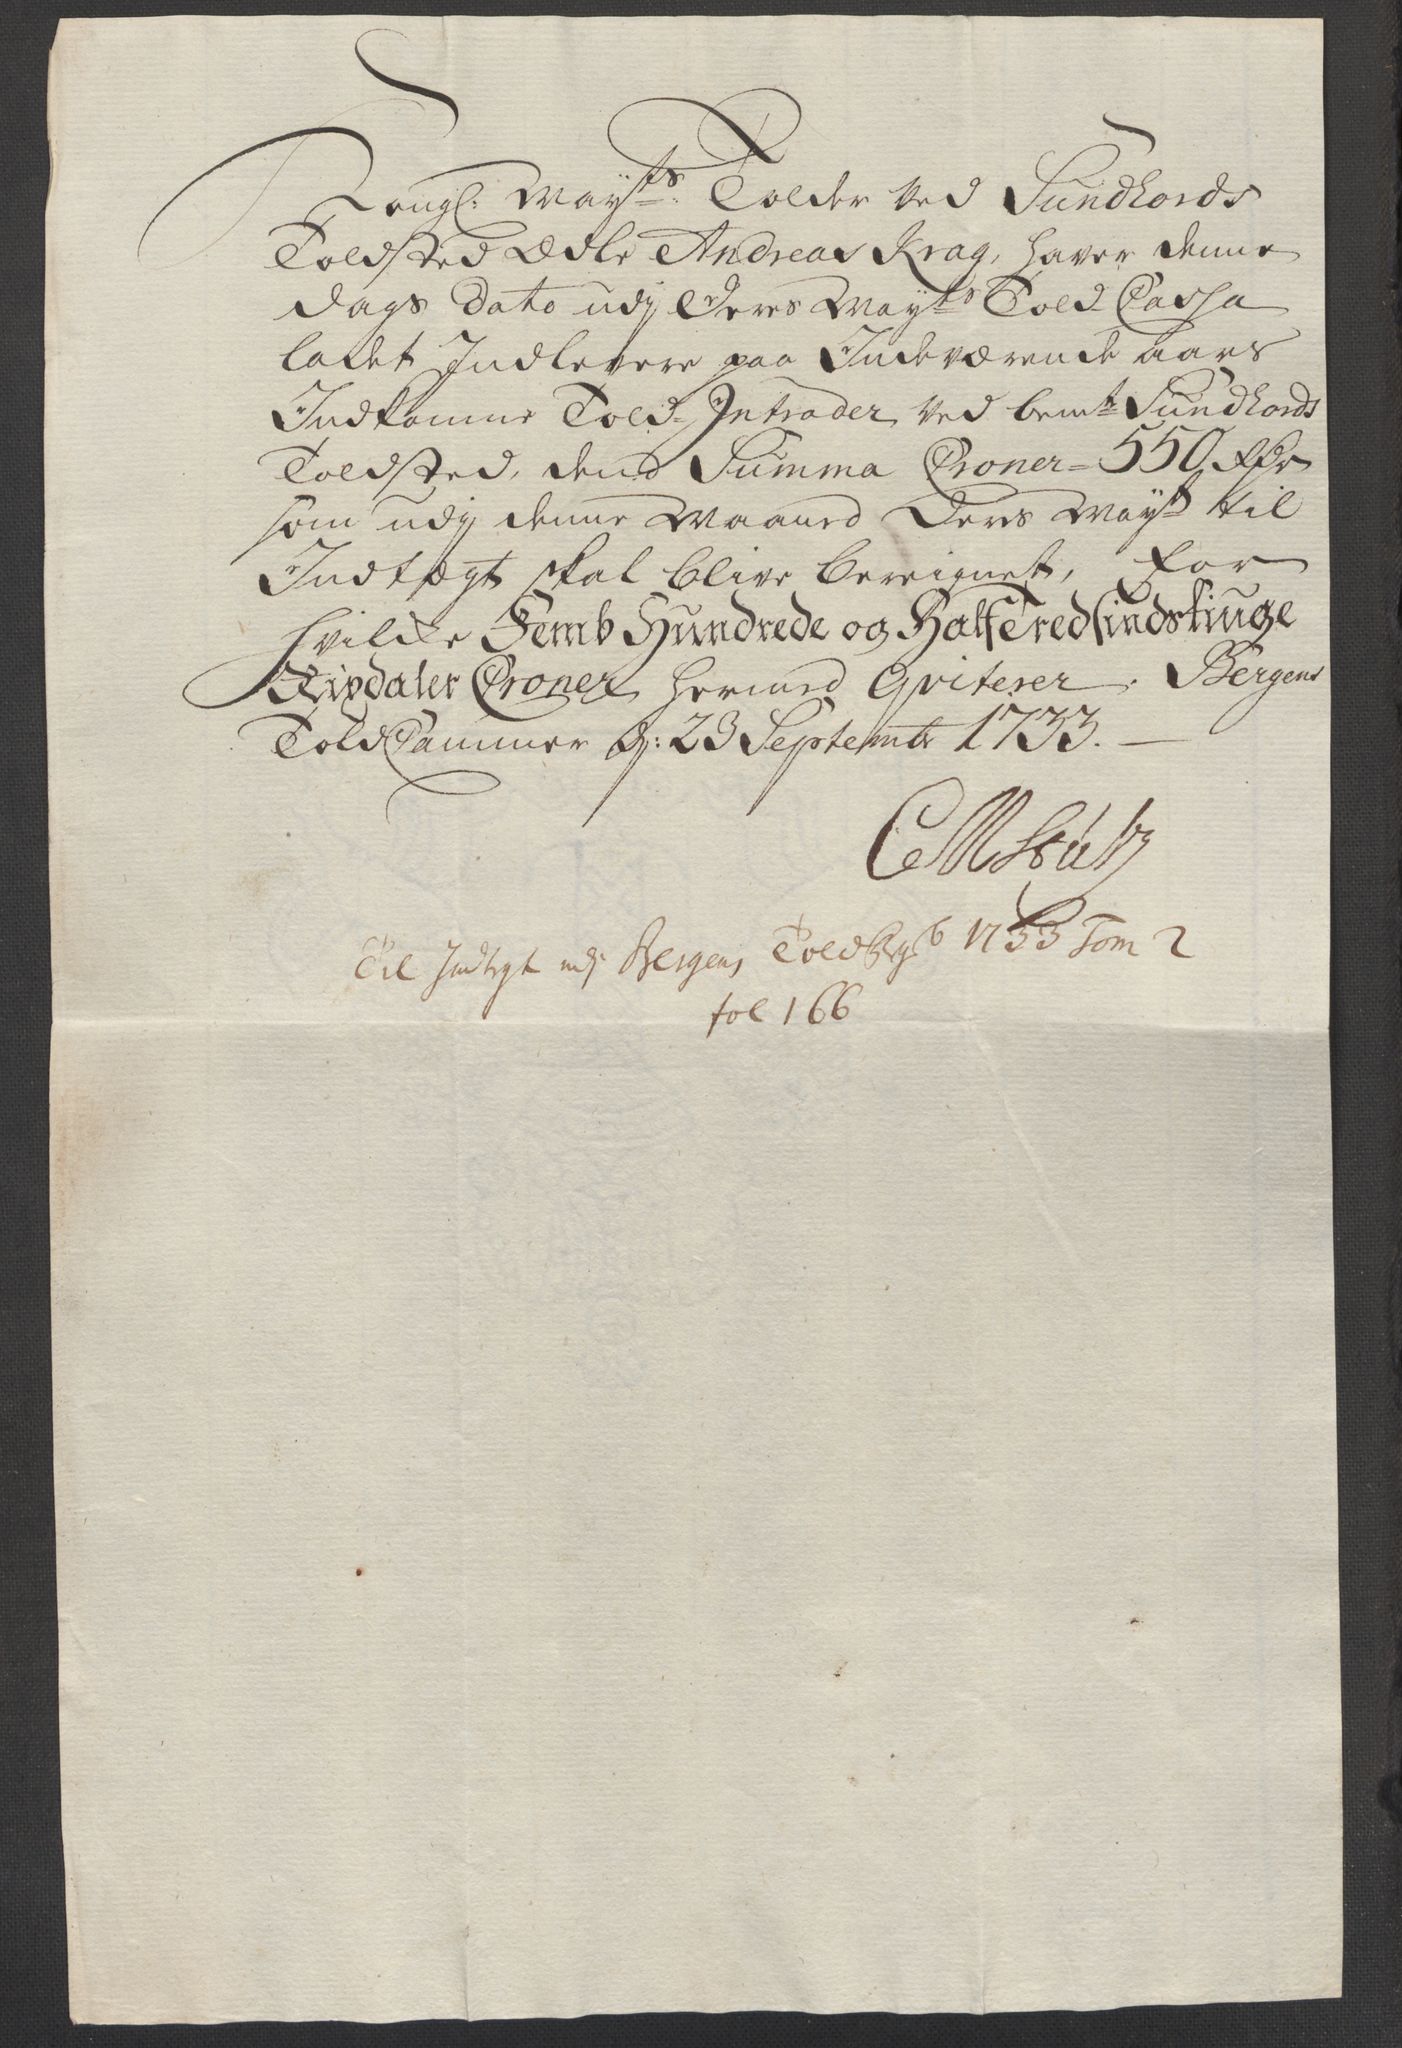 Kongl: Mayts: Tolder ved Sundhords
Toldsted Ædle Andreas Krag, haver denne
dags dato udj Deres Mayts Told Cassa
ladet Indlevere paa Indeværende aars
Indkomne Told-Intrader ved bemte Sundhords
Toldsted, dend Summa Croner = 550 Rdr
som udj denne Maaned Deres Mayts til
Indtægt skal blive bereignet, for
hvilcke Femb Hundrede og Halftredsindstiuge
Rixdaler Croner hermed Qviterer. Bergens
ToldCammer d: 23 Septembr 1733.
Til Indtegt udj Bergens 1733 Tom 2
fol 166